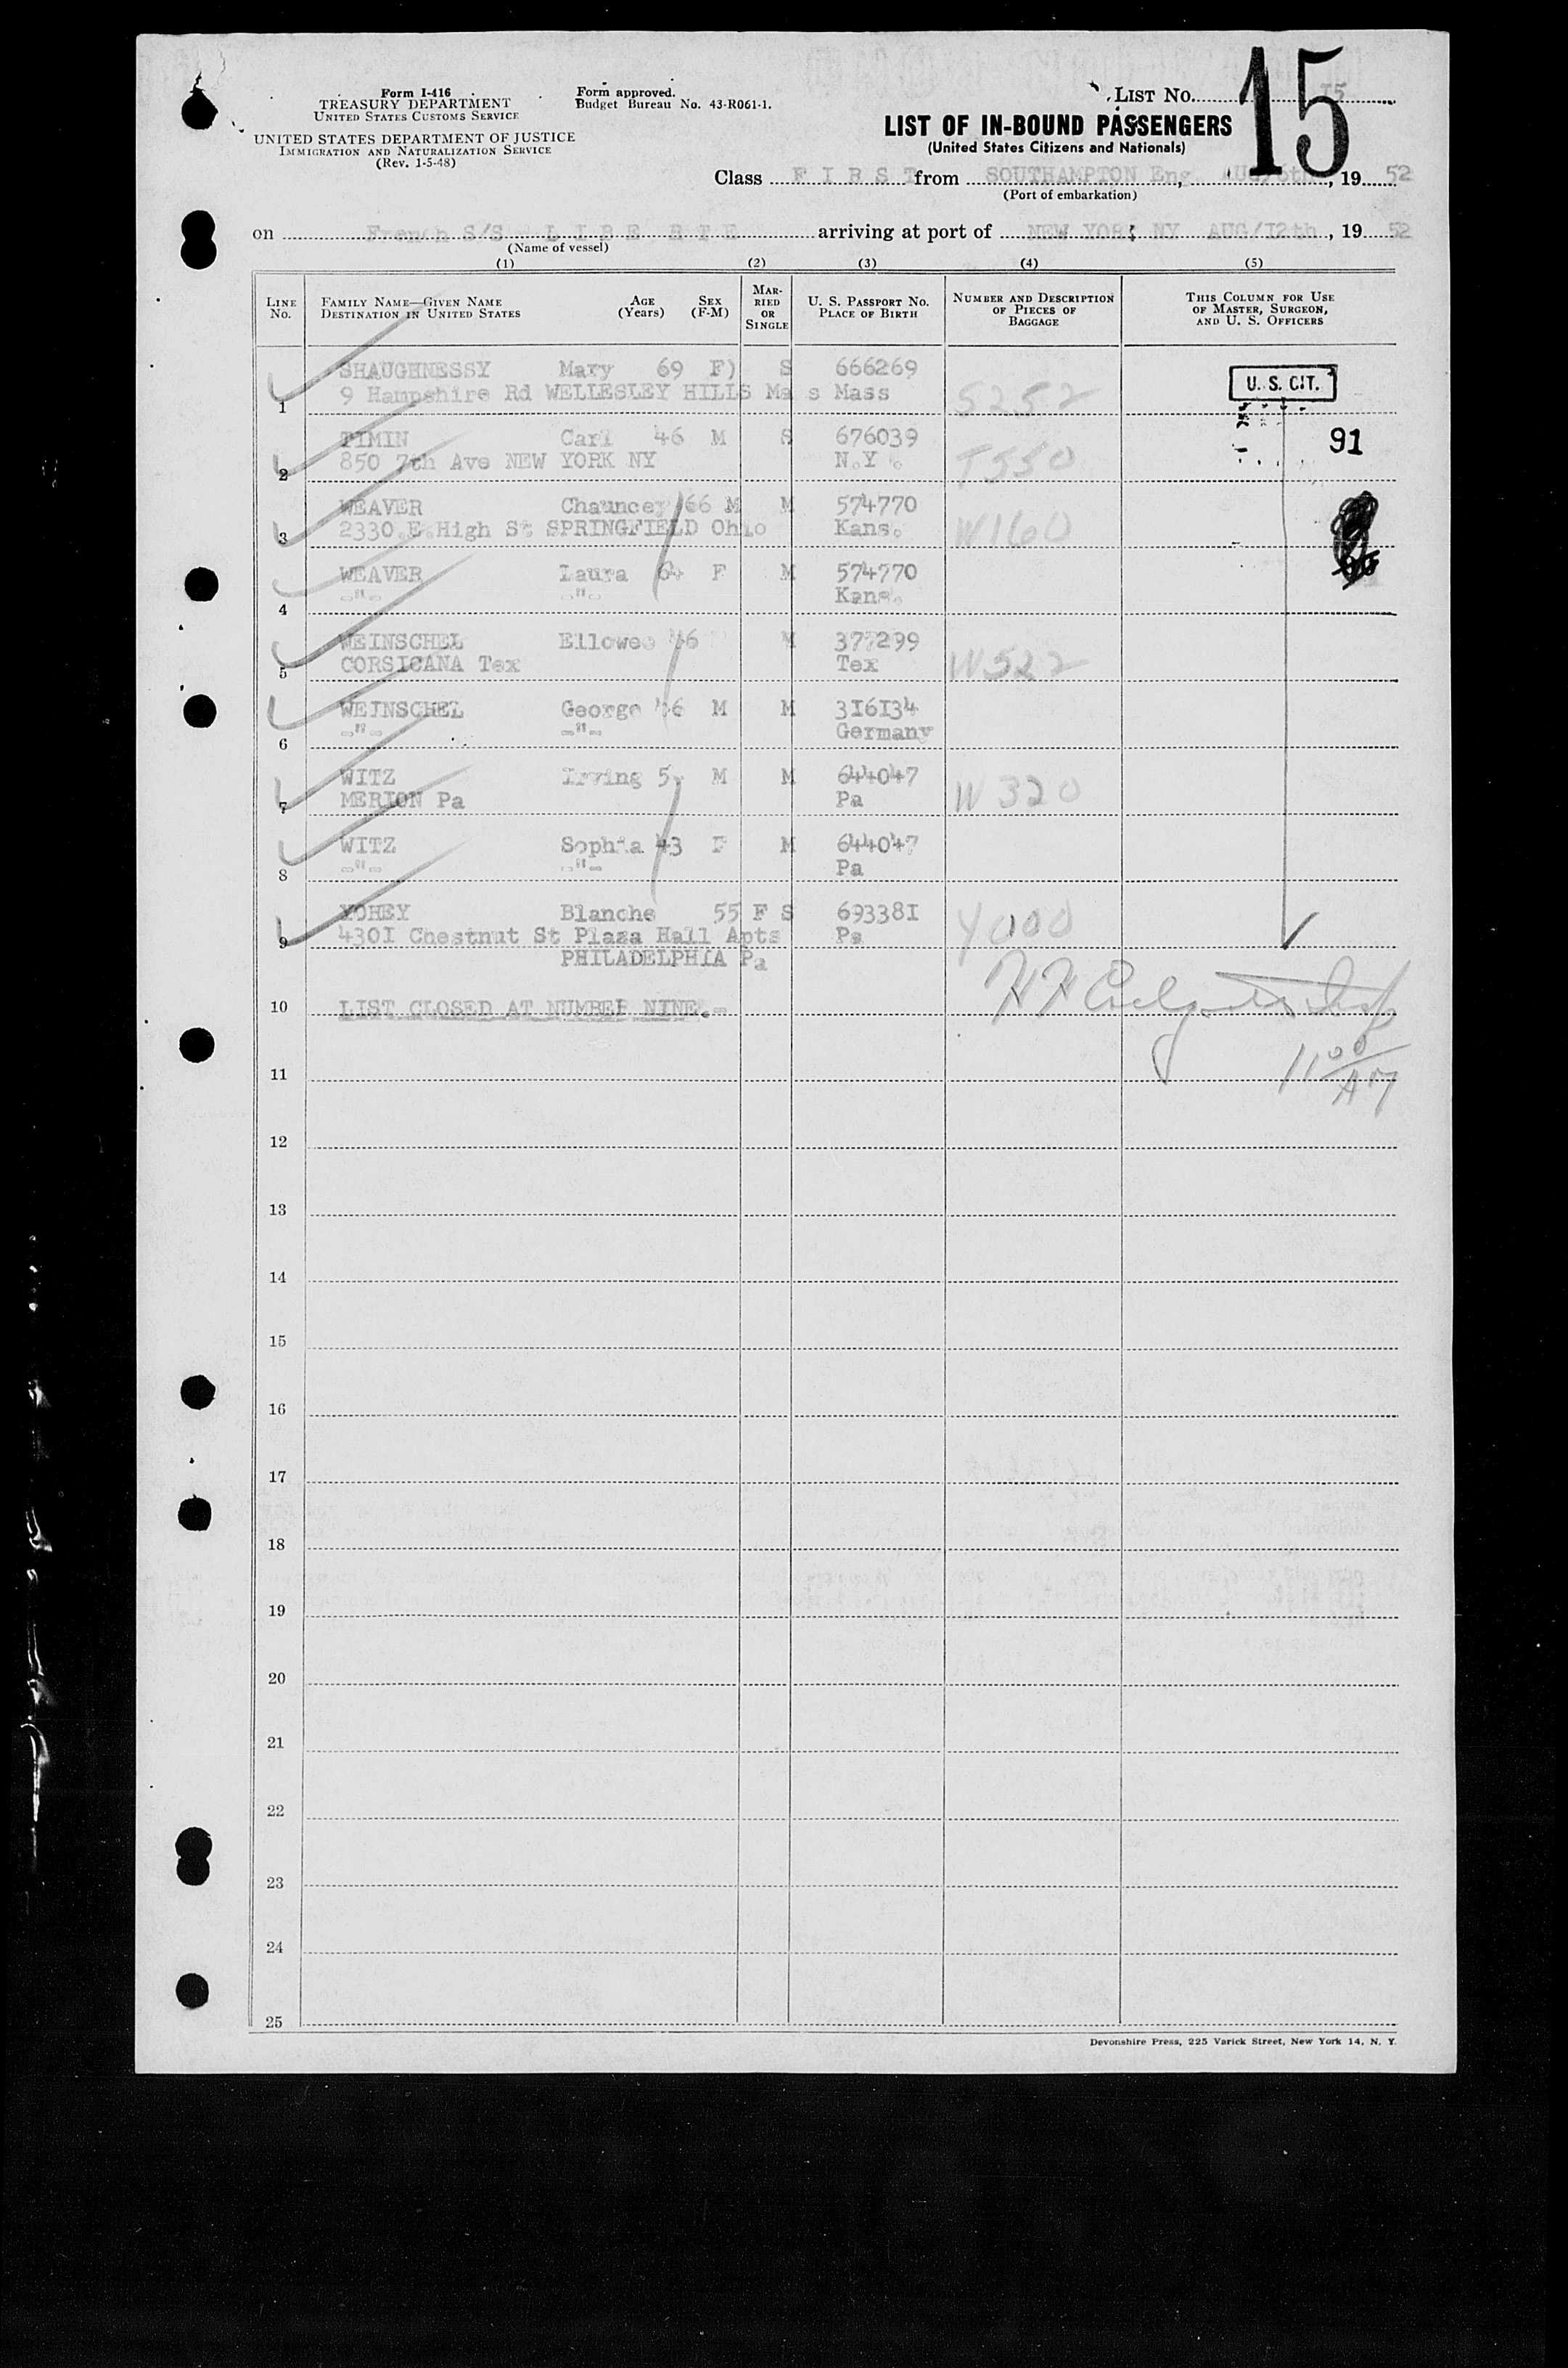 Form I-416
TREASURY DEPARTMENT
UNITED STATES CUSTOMS SERVICE
UNITED STATES DEPARTMENT OF JUSTICE
IMMIGRATION AND NATURALIZATION SERVICE
(Rev. 1-5-48)
Form approved.
Budget Bureau No. 43-R061-1.
LIST No. 15
15
LIST OF IN-BOUND PASSENGERS
(United States Citizens and Nationals)
Class F I R S T from SOUTHAMPTON Eng, AUG/6th, 19 52
(Port of embarkation)
on French S/S L I B E R T E arriving at port of NEW YORK NY AUG/I2th, 19 52
(Name of vessel)
(1) (2) (3) (4) (5)
LINE No. FAMILY NAME—GIVEN NAME DESTINATION IN UNITED STATES AGE (Years) SEX (F-M) MARRIED OR SINGLE U. S. PASSPORT No. PLACE OF BIRTH NUMBER AND DESCRIPTION OF PIECES OF BAGGAGE THIS COLUMN FOR USE OF MASTER, SURGEON, AND U. S. OFFICERS
SHAUGHNESSY Mary 69 F) S 666269 U. S. CIT.
1 9 Hampshire Rd WELLESLEY HILLS Ma s Mass S252
TIMIN Carl 46 M S 676039 91
2 850 7th Ave NEW YORK NY N.Y. T550
WEAVER Chauncey 66 M M 574770
3 2330 E.High St SPRINGFIELD Ohio Kans. W160
WEAVER Laura 64 F M 574770
4 -"- -"- Kans.
WEINSCHEL Ellowee 46 M 377299
5 CORSICANA Tex Tex W522
WEINSCHEL George 56 M M 3I6I34
6 -"- -"- Germany
WITZ Irving M M 644047
7 MERION Pa Pa W320
WITZ Sophia 43 F M 644047
8 -"- -"- Pa
YOHEY Blanche 55 F S 69338I
9 430I Chestnut St Plaza Hall Apts Pa Y000
PHILADELPHIA Pa
10 LIST CLOSED AT NUMBER NINE.-
11 11 00 AM
12
13
14
15
16
17
18
19
20
21
22
23
24
25
Devonshire Press, 225 Varick Street, New York 14, N. Y.